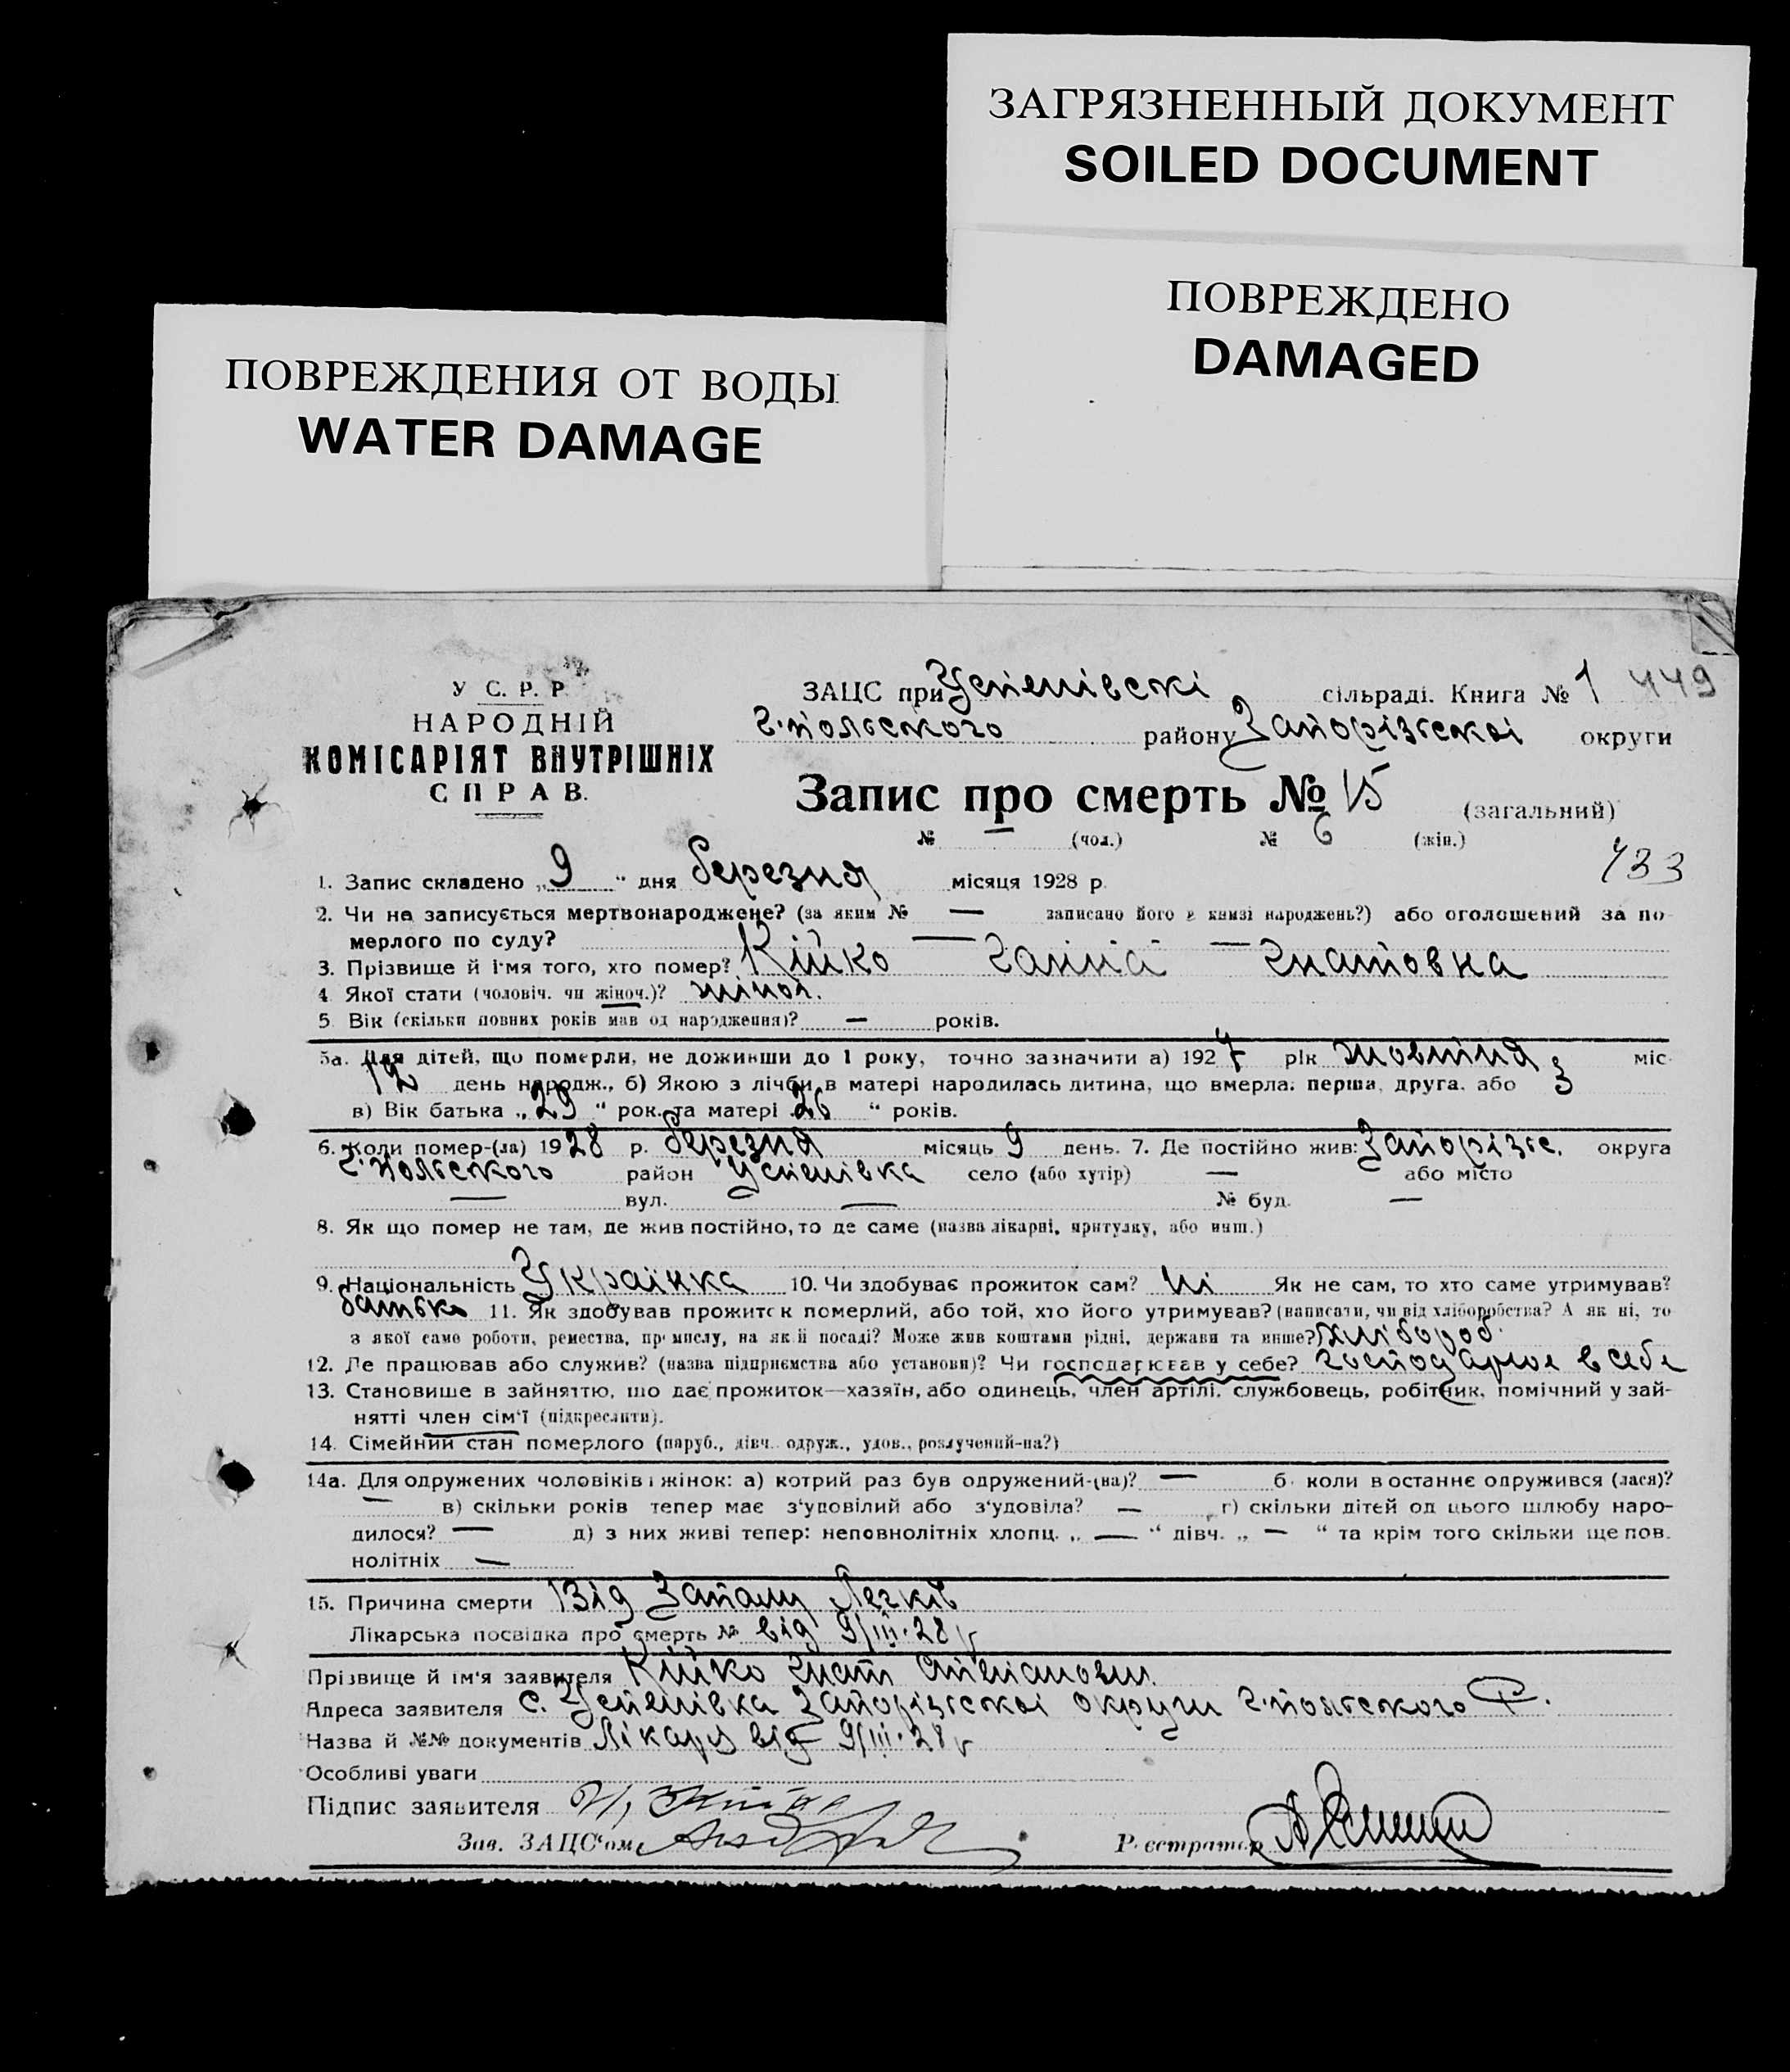 ЗАГРЯЗНЕННЫЙ ДОКУМЕНТ
SOILED DOCUMENT
ПОВРЕЖДЕНО
DAMAGED
ПОВРЕЖДЕНИЯ ОТ ВОДЫ
WATER DAMAGE
У С. Р. Р.
НАРОДНІЙ
КОМІСАРІЯТ ВНУТРІШНІХ
СПРАВ.
ЗАЦС при Успенівскі сільраді. Книга № 1 449
Г.польского району Запорізскоі округи
Запис про смерть № 15 (загальний)
№ — (чол.) № 6 (жін.)
433
1. Запис складено „9“ дня березня місяця 1928 р.
2. Чи не записується мертвонароджене? (за яким № — записано його в книзі народжень?) або оголошений за по-
мерлого по суду? — —
3. Прізвище й ім'я того, хто помер? Кійко Ганна Гнатовна
4. Якої стати (чоловіч. чи жіноч.)? жіноч.
5. Вік (скільки повних років мав од народження)? — років.
5а. Для дітей, що померли, не доживши до 1 року, точно зазначити а) 1927 рік жовтня міс.
12 день народж., б) Якою з лічби в матері народилась дитина, що вмерла: перша, друга, або 3
в) Вік батька „29“ рок. та матері 26“ років.
6. Коли помер-(ла) 1928 р. березня місяць 9 день. 7. Де постійно жив: Запорізс. округа
Г.польского район Успенівка село (або хутір) — або місто
— вул. — № буд. —
8. Як що помер не там, де жив постійно, то де саме (назва лікарні, притулку, або инш.)
9. Національність Українка 10. Чи здобуває прожиток сам? Ні Як не сам, то хто саме утримував?
батько 11. Як здобував прожиток померлий, або той, хто його утримував? (написати, чи від хліборобства? А як ні, то
з якої саме роботи, ремества, промислу, на якій посаді? Може жив коштами рідні, держави та инше?) хлібороб.
12. Де працював або служив? (назва підприємства або установи)? Чи господарював у себе? в себе
13. Становище в зайняттю, що дає прожиток—хазяїн, або одинець, член артілі, службовець, робітник, помічний у зай-
нятті член сім'ї (підкреслити).
14. Сімейний стан померлого (паруб., дівч. одруж., удов., розлучений-на?)
14а. Для одружених чоловіків і жінок: а) котрий раз був одружений-(на)? — б. коли в останнє одружився (лася)?
— в) скільки років тепер має з'удовілий або з'удовіла? — г) скільки дітей од цього шлюбу наро-
дилося? — д) з них живі тепер: неповнолітніх хлопц. „ — “ дівч. „ — “ та крім того скільки ще пов.
нолітніх —
15. Причина смерти Від Запалу Легків
Лікарська посвідка про смерть № від 9/III-28 р
Прізвище й ім'я заявителя Кійко Гнат
Адреса заявителя с. Успенівка Запорізскоі округи Г.польского р.
Назва й №№ документів Лікаря від 9/III-28 р
Особливі уваги
Підпис заявителя
Зав. ЗАЦС'ом
Реєстратор